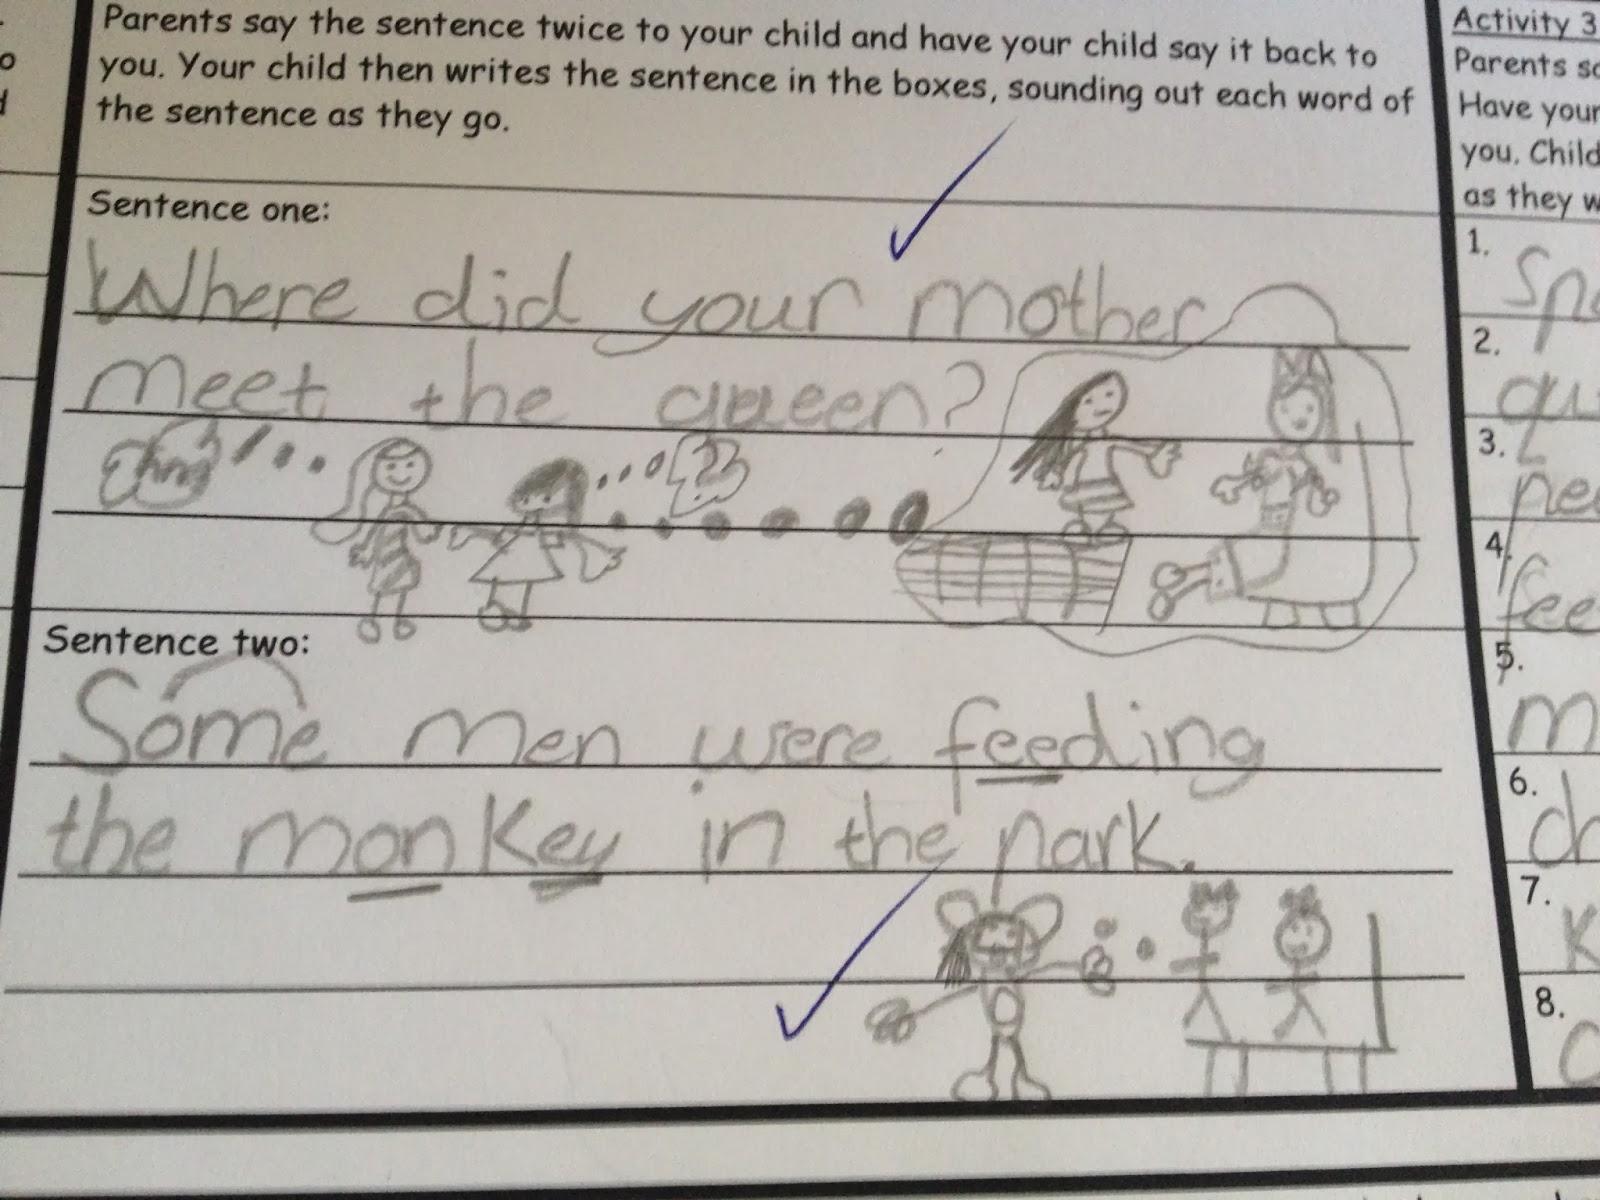 Parents say the sentence twice to your child and have your child say it back to
you. Your child then writes the sentence in the boxes, sounding out each word of
the sentence as they go.
Sentence one:
Where did your mother
meet the queen?
??
Sentence two:
Some men were feeding
the monkey in the park.
Activity 3
Parents
Have your
you. Child
as they
1.
2.
3.
4.
5.
6.
7.
8.